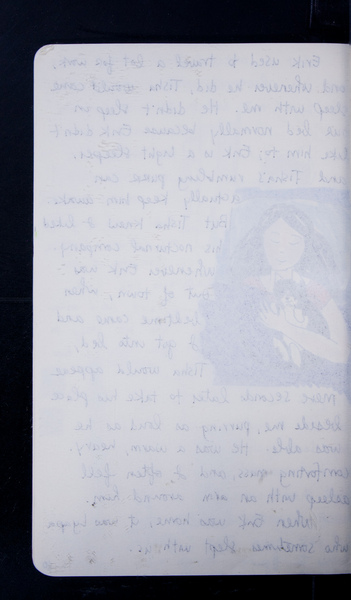 Erik used to travel a lot for work,
and whenever he did, Tisha would come
sleep with me. He didn't sleep in
our bed normally, because Erik didn't
like him to; Erik is a light sleeper
and Tisha's rumbling purr can
actually keep him awake.
But Tisha knew I liked
his nocturnal company
whenever Erik was
out of town, when
bedtime came and
I got into bed,
Tisha would appear
mere seconds later to take his place
beside me, purring as loud as he
was able. He was a warm, heavy,
comforting mass, and I often fell
asleep with an arm around him.
When Erik was home, it was
who sometimes slept within